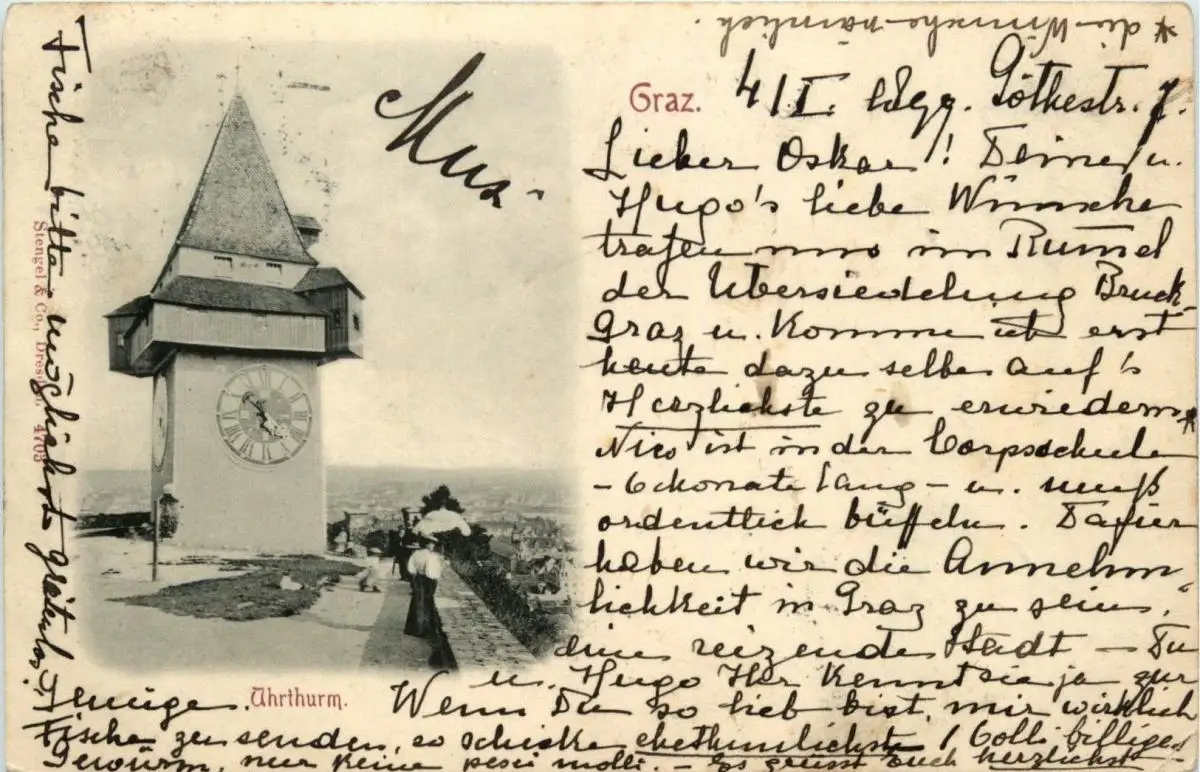 * die Wünsche nämlich.
Graz. 4/I.
Lieber Oskar! Deine u.
Hugo's liebe Wünsche
trafen uns im Rumel
der Übersiedelung Bruck-
Graz u. komme ich erst
heute dazu selbe auf's
Herzlichste zu erwiedern *
Nico ist in der Corpsschule
- 6 Monate lang - u. muß
ordentlich büffeln. Dafür
haben wir die Annehm-
lichkeit in Graz zu sein,
eine reizende Stadt - Du
u. Hugo Ihr kennt sie ja zur
Genüge. Wenn Du so lieb bist, mir wirklich
Fische zu senden, so schicke ehethunlichst 1 Colli billiges
Gewürm, nur keine pesci molli. - Es grüsst Euch herzlichst -
Fische bitte möglichst grätenlos!
Uhrthurm.
Stengel & Co., Dresden. 4703